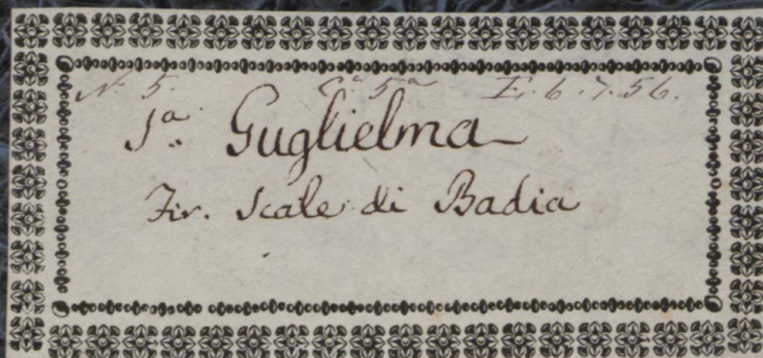 N. 5. C.ª 5ª E. 6. 7. 56.
Sª. Guglielma
Fir. Scale di Badia